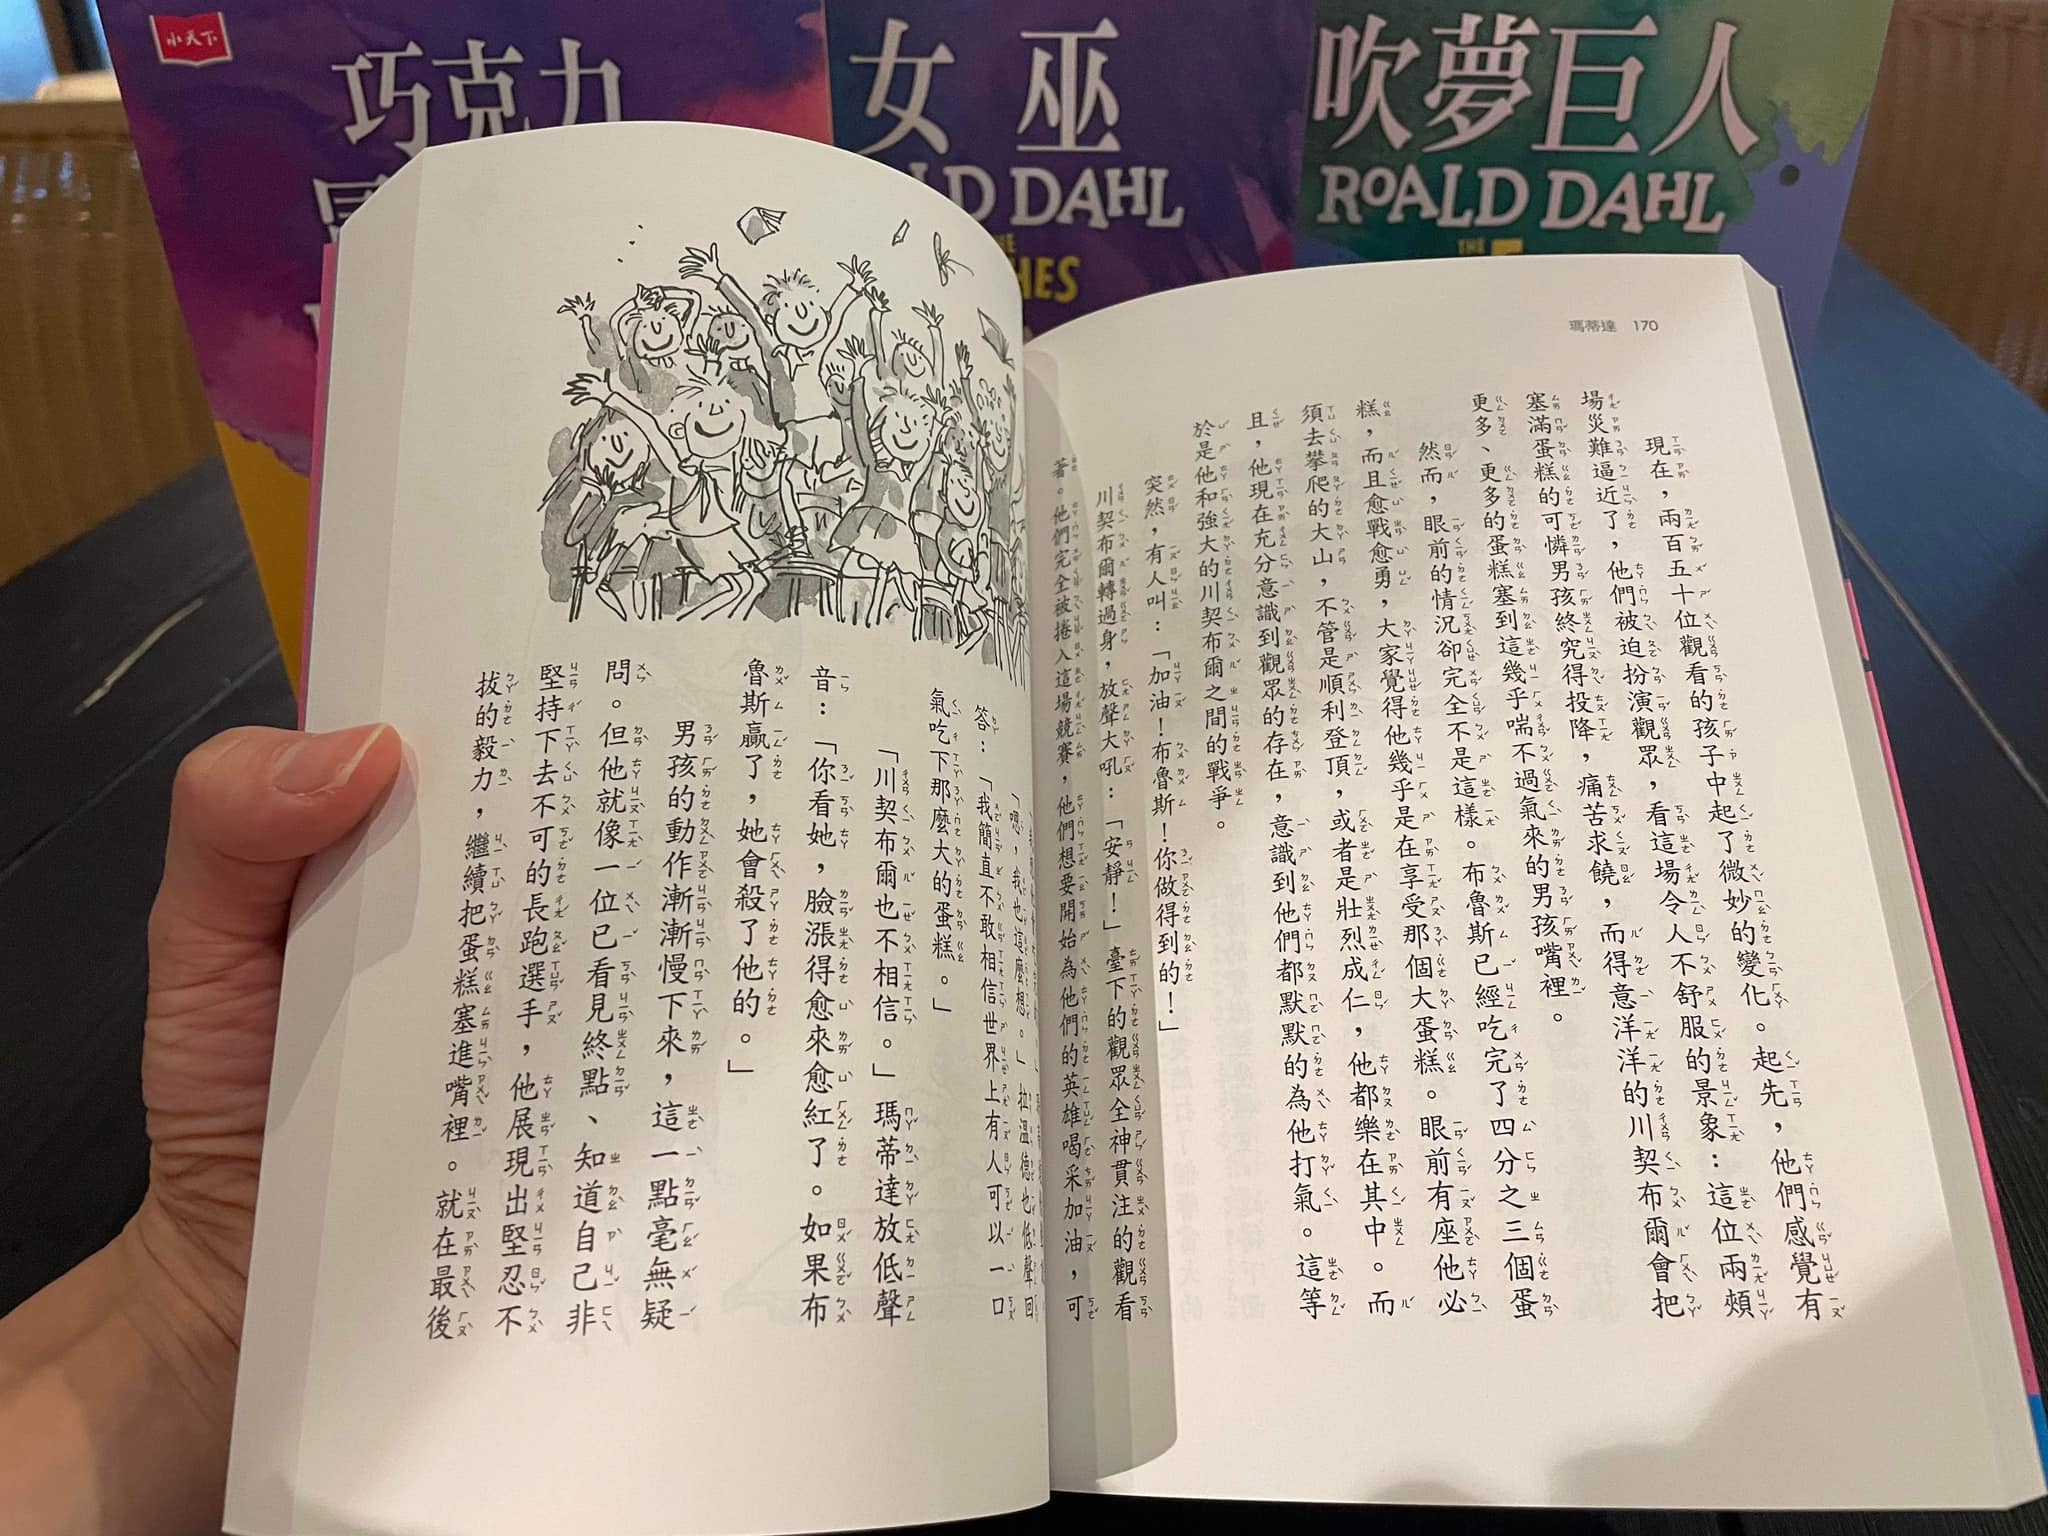 小天下
巧克力
女巫
LD DAHL
THE
HES
吹夢巨人
ROALD DAHL
THE
瑪蒂達 170
現在，兩百五十位觀看的孩子中起了微妙的變化。起先，他們感覺有
場災難逼近了，他們被迫扮演觀眾，看這場令人不舒服的景象：這位兩頰
塞滿蛋糕的可憐男孩終究得投降，痛苦求饒，而得意洋洋的川契布爾會把
更多、更多的蛋糕塞到這幾乎喘不過氣來的男孩嘴裡。
然而，眼前的情況卻完全不是這樣。布魯斯已經吃完了四分之三個蛋
糕，而且愈戰愈勇，大家覺得他幾乎是在享受那個大蛋糕。眼前有座他必
須去攀爬的大山，不管是順利登頂，或者是壯烈成仁，他都樂在其中。而
且，他現在充分意識到觀眾的存在，意識到他們都默默的為他打氣。這等
於是他和強大的川契布爾之間的戰爭。
突然，有人叫：「加油！布魯斯！你做得到的！」
川契布爾轉過身，放聲大吼：「安靜！」臺下的觀眾全神貫注的觀看
著。他們完全被捲入這場競賽，他們想要開始為他們的英雄喝采加油，可
「嗯，我也這麼想。」拉溫德也低聲回
答：「我簡直不敢相信世界上有人可以一口
氣吃下那麼大的蛋糕。」
「川契布爾也不相信。」瑪蒂達放低聲
音：「你看她，臉漲得愈來愈紅了。如果布
魯斯贏了，她會殺了他的。」
男孩的動作漸漸慢下來，這一點毫無疑
問。但他就像一位已看見終點、知道自己非
堅持下去不可的長跑選手，他展現出堅忍不
拔的毅力，繼續把蛋糕塞進嘴裡。就在最後